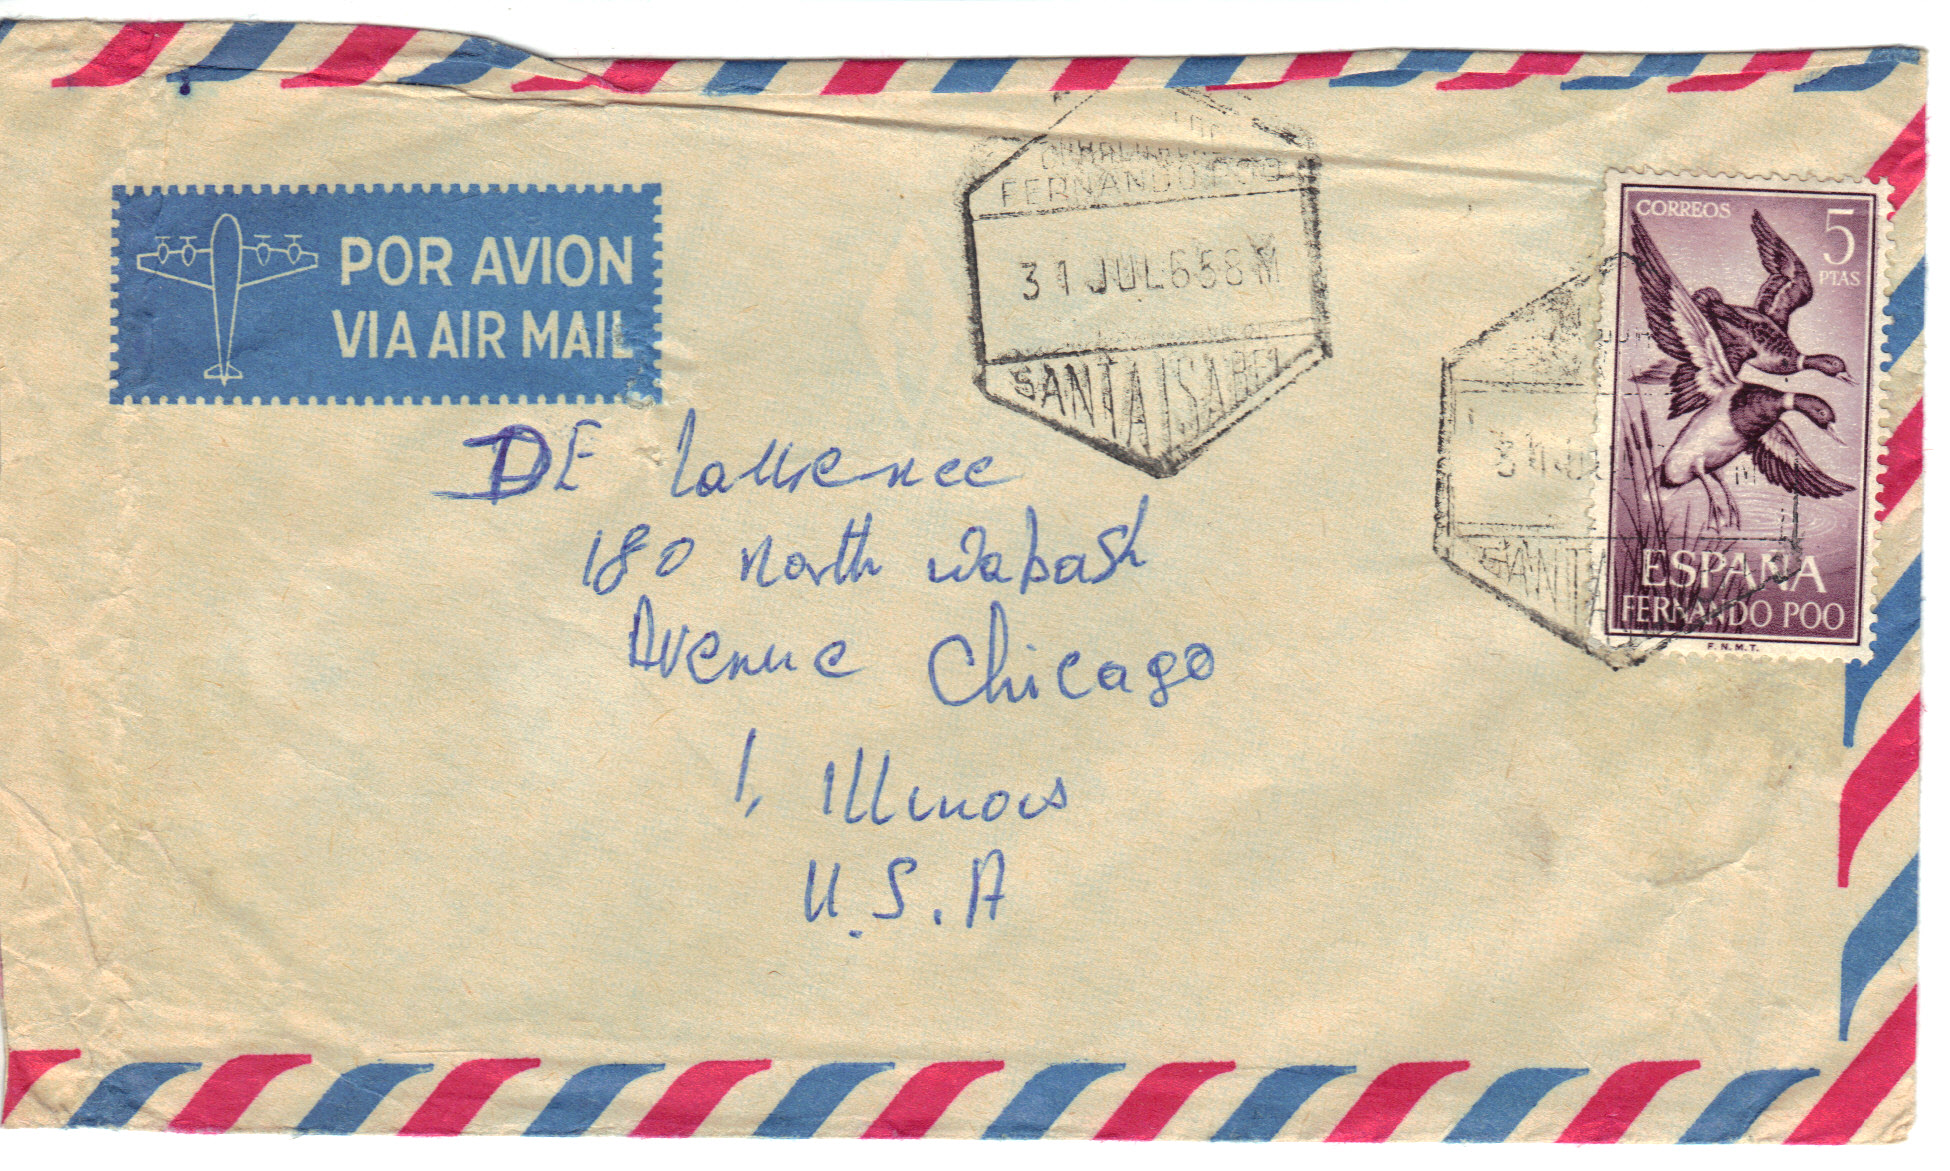 POR AVION
VIA AIR MAIL
FERNANDO POO
31 JUL 65 8M
SANTA ISABEL
CORREOS
5
PTAS
SANTA
ESPAÑA
FERNANDO POO
F.N.M.T.
DE Laurence
180 North Wabash
Avenue Chicago
1, Illinois
U.S.A